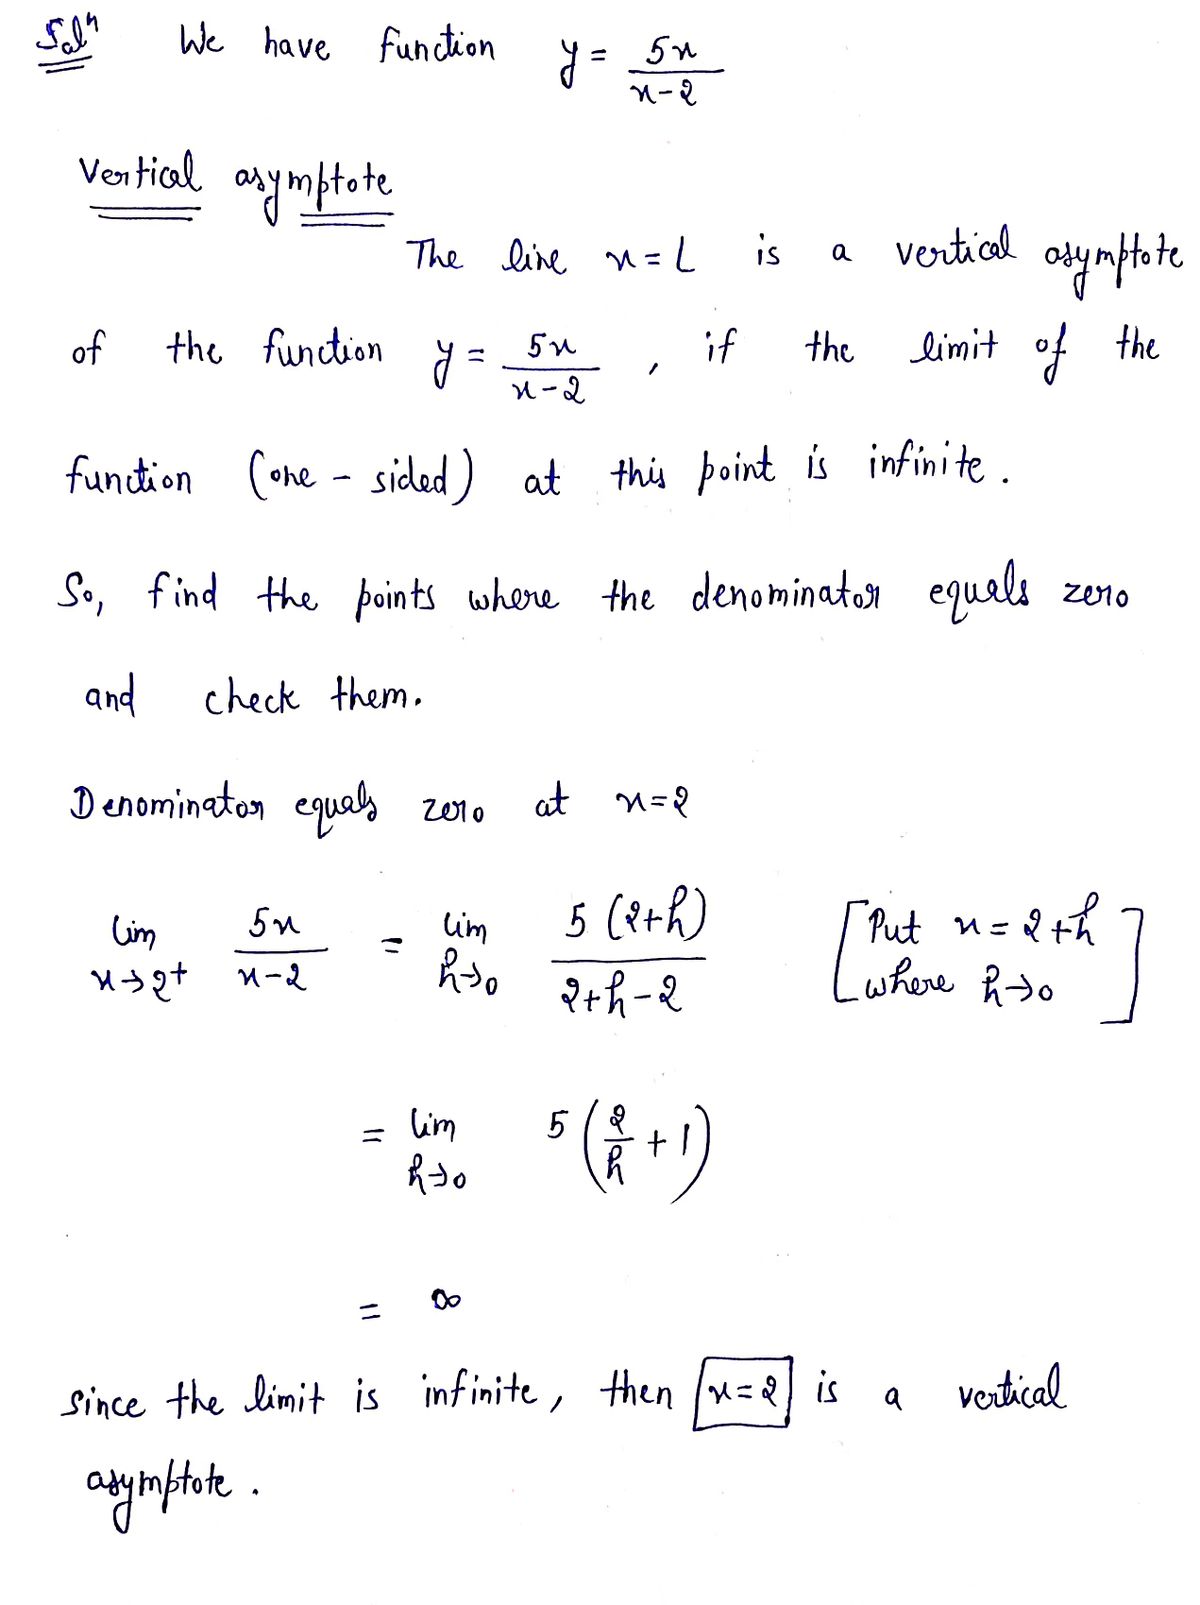 Solⁿ We have function y = 5x/(x-2)
Vertical asymptote
The line x = L is a vertical asymptote
of the function y = 5x/(x-2), if the limit of the
function (one-sided) at this point is infinite.
So, find the points where the denominator equals zero
and check them.
Denominator equals zero at x=2
lim x→2+ 5x/(x-2) = lim h→0 5(2+h)/(2+h-2) [Put x = 2+h where h→0]
= lim h→0 5(2/h + 1)
= ∞
since the limit is infinite, then x=2 is a vertical
asymptote.